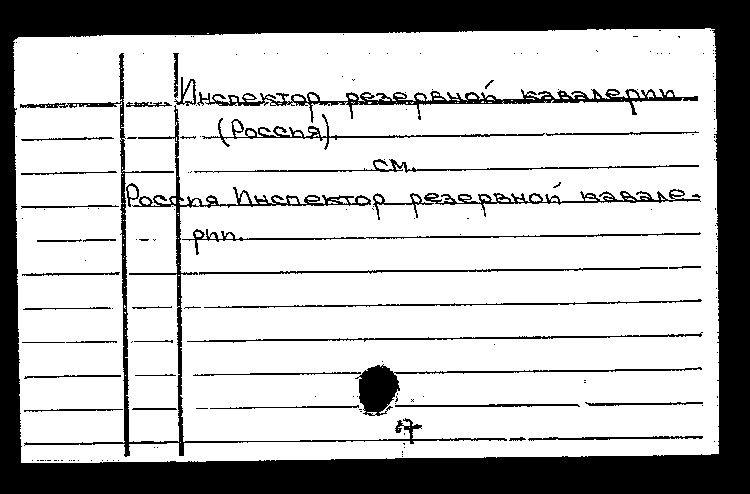 Инспектор резервной кавалерии
(Россия).
см.
Россия. Инспектор резервной кавале-
рии.